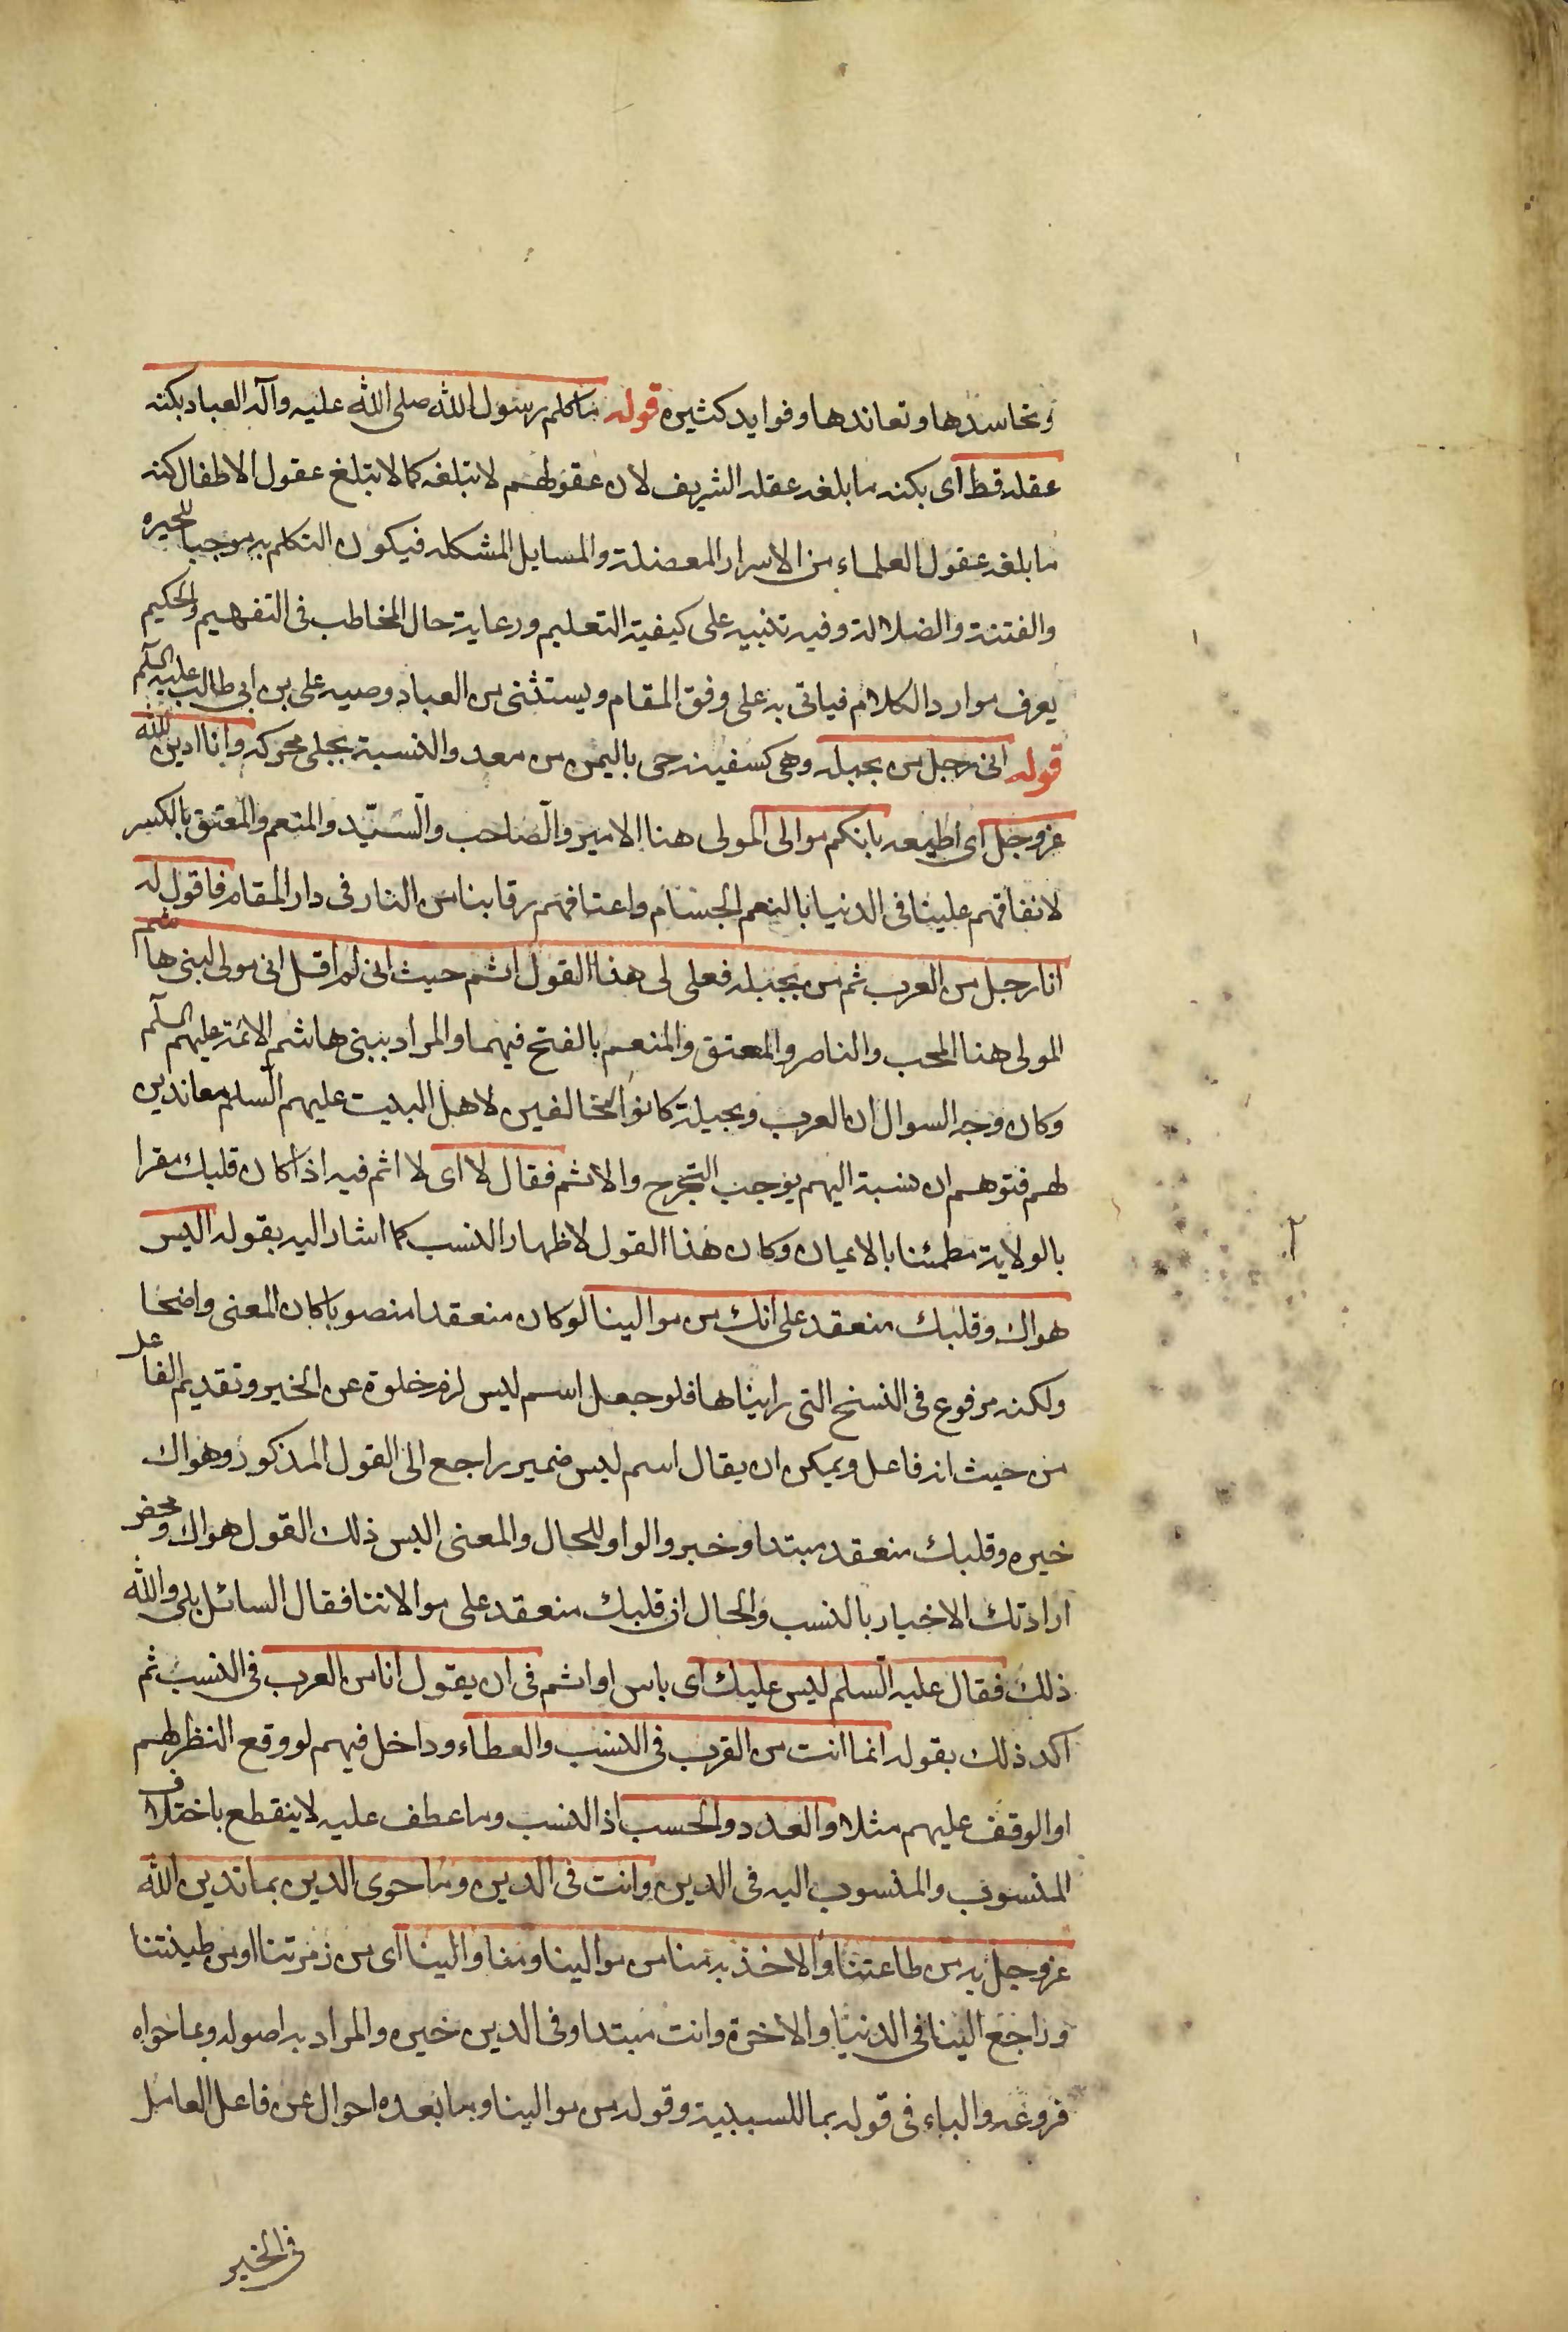 وتحاسدها وتعاندها وفوايد كثيره قوله ما كلم رسول الله صلى الله عليه وآله العباد بكنه
عقله قط اى بكنه ما بلغه عقله الشريف لان عقولهم لا تبلغه كما لا تبلغ عقول الاطفال كنه
ما بلغه عقول العلماء من الاسرار المعضلة والمسايل المشكله فيكون التكلم به موجبا للحيره
والفتنة والضلالة وفيه تنبيه على كيفية التعليم ورعاية حال المخاطب فى التفهيم والحكيم
يعرف موارد الكلام فياتى به على وفق المقام ويستثنى من العباد وصيه على بن ابى طالب عليه السلم
قوله انى رجل من بجيله وهى كسفينه حى باليمن من معد والنسبة بجلى محركه وانا ادين الله
عز وجل اى اطيعه بانكم موالى المولى هنا الامير والصاحب والسيّد والمنعم والمعتق بالكسر
لانفاقهم علينا فى الدنيا بالنعم الجسام واعتاقهم رقابنا من النار فى دار المقام فاقول له
انا رجل من العرب ثم من بجيله فعلى لى هذا القول اثم حيث انى لم اقل انى مولى لبنى هاشم
المولى هنا المحب والناصر والمعتق والمنعم بالفتح فيهما والمراد ببنى هاشم الائمة عليهم السلم
وكان وجه السوال ان العرب وبجيلة كانوا مخالفين لاهل البيت عليهم السلم معاندين
لهم فتوهم ان نسبة اليهم يوجب التحرج والاثم فقال لا اى لا اثم فيه اذا كان قلبك مقرا
بالولاية مطمئنا بالايمان وكان هذا القول لاظهار النسب كما اشار اليه بقوله اليس
هواك وقلبك منعقد على انك من موالينا لو كان منعقدا منصوبا كان المعنى واضحا
ولكنه مرفوع فى النسخ التى رايناها فلو جعل اسم ليس لزم خلوه عن الخبر وتقديم الفاعل
من حيث انه فاعل ويمكن ان يقال اسم ليس ضمير راجع الى القول المذكور وهواك
خبره وقلبك منعقد مبتدا وخبر والواو للحال والمعنى اليس ذلك القول هواك ومحض
ارادتك الاخبار بالنسب والحال ان قلبك منعقد على موالاتنا فقال السائل بلى والله
ذلك فقال عليه السلم ليس عليك اى باس او اثم فى ان يقول انا من العرب فى النسب ثم
اكد ذلك بقوله انما انت من العرب فى النسب والعطاء وداخل فيهم لو وقع النظر لهم
او الوقف عليهم مثلا والعدد والحسب اذ النسب وما عطف عليه لا ينقطع باختلاف
المنسوب والمنسوب اليه فى الدين وانت فى الدين وما حوى الدين بما تدين الله
عز وجل به من طاعتنا والاخذ به منا من موالينا ومنا والينا اى من زمرتنا او من طينتنا
وراجع الينا فى الدنيا والاخرة وانت مبتدا وفى الدين خبره والمراد به اصوله وبما حواه
فروعه والباء فى قوله بما للسببية وقوله من موالينا وما بعده احوال عن فاعل العامل
فى الخبر